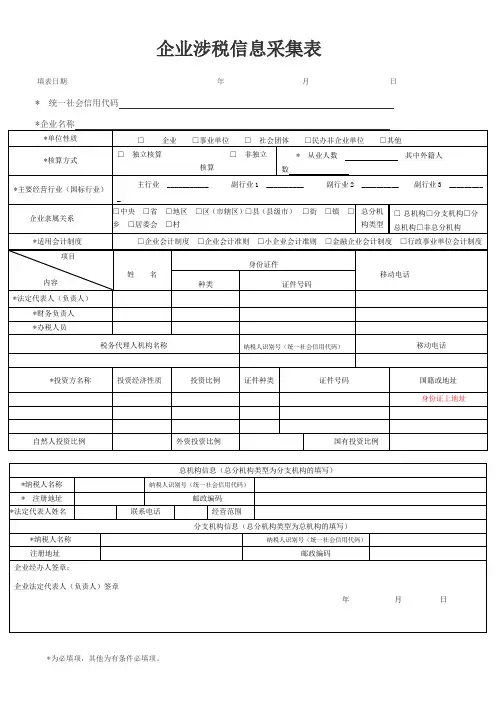 企业涉税信息采集表
填表日期 年 月 日
* 统一社会信用代码
*企业名称
*单位性质 □ 企业 □事业单位 □ 社会团体 □民办非企业单位 □其他
*核算方式 □ 独立核算 □ 非独立核算 * 从业人数 其中外籍人数
*主要经营行业（国标行业） 主行业 副行业1 副行业2 副行业3
企业隶属关系 □中央 □省 □地区 □区（市辖区）□县（县级市） □街 □镇 □乡 □居委会 □村 总分机构类型 □ 总机构□分支机构□分总机构□非总分机构
*适用会计制度 □企业会计制度 □企业会计准则 □小企业会计准则 □金融企业会计制度 □行政事业单位会计制度
项目 内容 姓 名 身份证件 移动电话
种类 证件号码
*法定代表人（负责人）
*财务负责人
*办税人员
税务代理人机构名称 纳税人识别号（统一社会信用代码） 移动电话
*投资方名称 投资经济性质 投资比例 证件种类 证件号码 国籍或地址
身份证上地址
自然人投资比例 外资投资比例 国有投资比例
总机构信息（总分机构类型为分支机构的填写）
*纳税人名称 纳税人识别号（统一社会信用代码）
* 注册地址 邮政编码
*法定代表人姓名 联系电话 经营范围
分支机构信息（总分机构类型为总机构的填写）
*纳税人名称 纳税人识别号（统一社会信用代码）
注册地址 邮政编码
企业经办人签章：
企业法定代表人（负责人）签章
年 月 日
*为必填项，其他为有条件必填项。